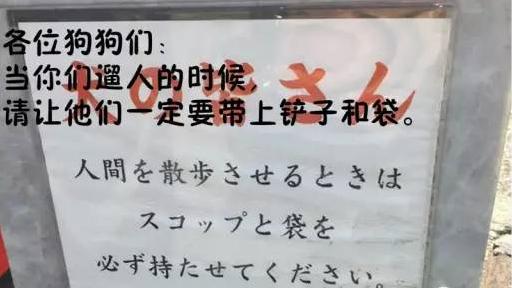 各位狗狗们:
当你们遛人的时候,
请让他们一定要带上铲子和袋。
犬の皆さん
人間を散歩させるときは
スコップと袋を
必ず持たせてください。